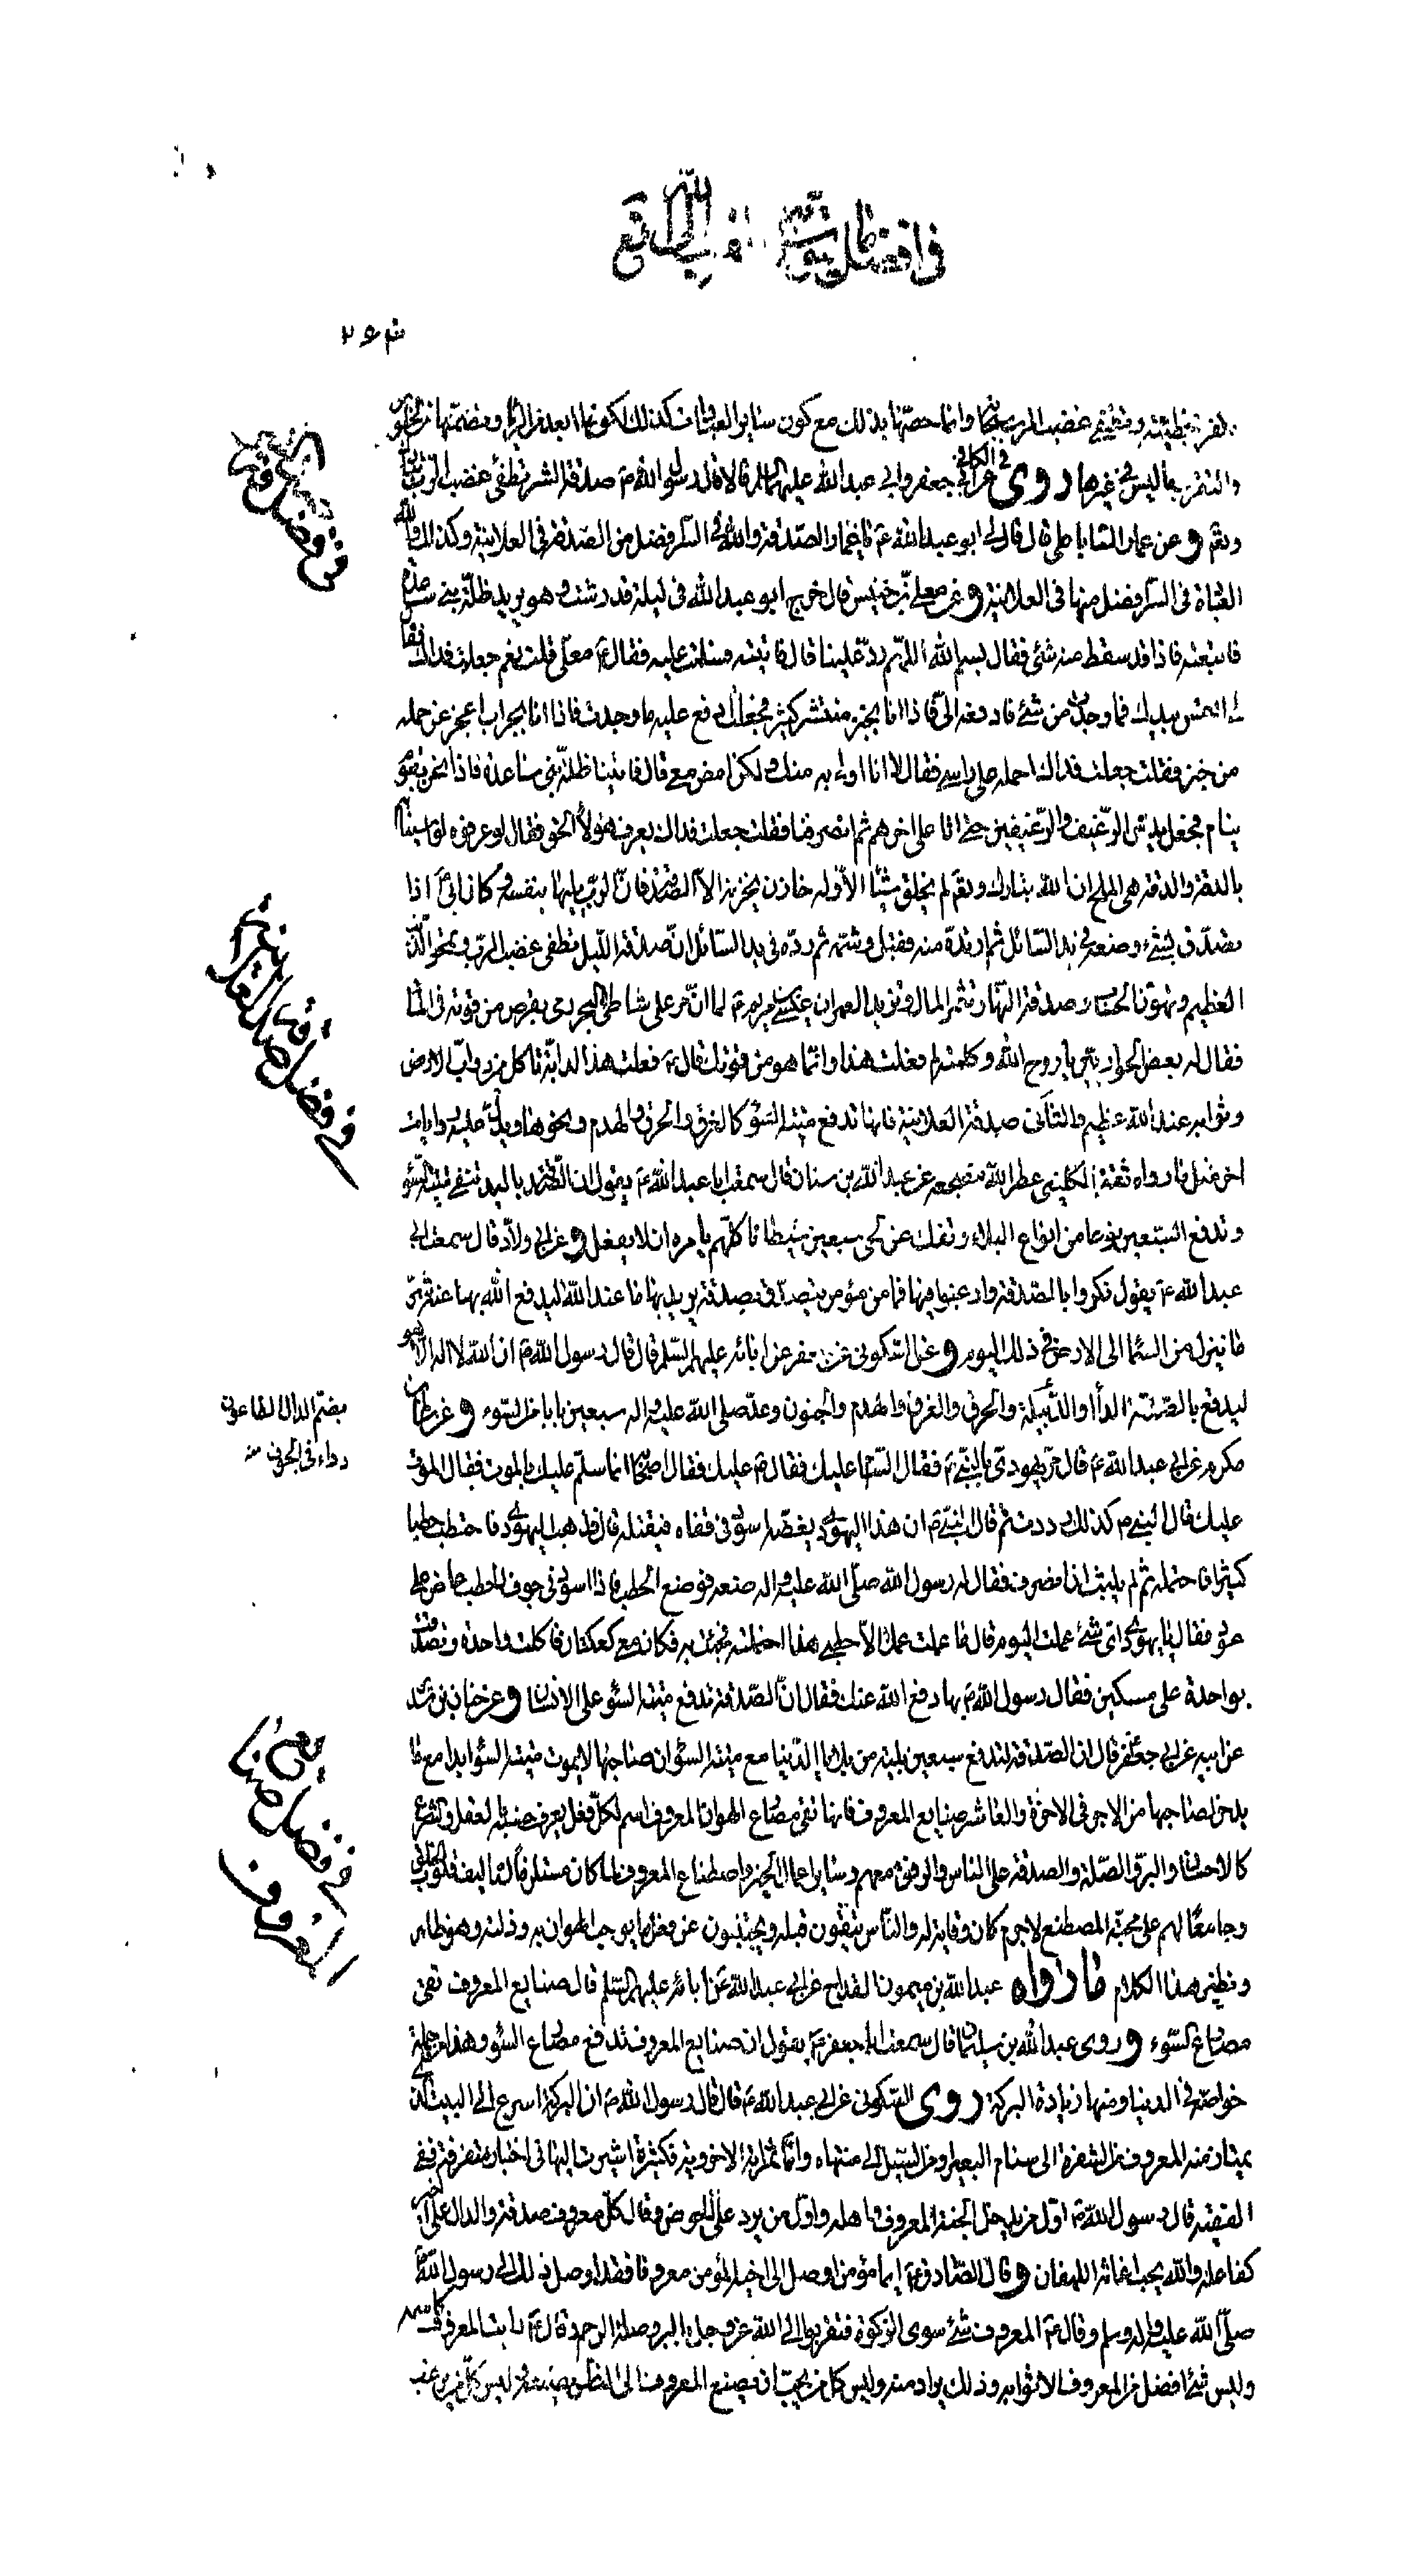 في افضل ما يتوسل به الى الله تع
والتقرب بما ليس في غيرها روى في الكافي عن ابي جعفر وابي عبدالله عليهما السلام قالا قال رسول الله ص صدقة السر تطفئ غضب الرب تبارك
وتعم وعن عمار الساباطي قال قال لي ابو عبدالله ع يا عمار الصدقة والله في السر افضل من الصدقة في العلانية وكذلك والله
العبادة في السر افضل منها في العلانية وعن معلى بن خنيس قال خرج ابو عبدالله في ليلة قد رشت وهو يريد ظلة بني ساعدة
فاتبعته فاذا قد سقط منه شئ فقال بسم الله اللهم رد علينا قال فاتيته فسلمت عليه فقال ع معلى قلت نعم جعلت فداك فقال
لي التمس بيدك فما وجدت من شئ فادفعه الي فاذا انا بخبز منتشر كثير فجعلت ادفع عليه ما وجدت فاذا انا بجراب اعجز عن حمله
من خبز فقلت جعلت فداك احمله على راسي فقال لا انا اولى به منك ولكن امض معي قال فاتينا ظلة بني ساعدة فاذا نحن بقوم
ينام فجعل يدس الرغيف والرغيفين حتى اتا على اخرهم ثم انصرفنا فقلت جعلت فداك يعرف هؤلاء الحق فقال لو عرفوه لواسيناهم
بالدقة والدقة هي الملح ان الله تبارك وتعم لم يخلق شيئا الا وله خازن يخزنه الا الصدقة فان الرب يليها بنفسه وكان ابي ع اذا
تصدق بشئ وضعه في يد السائل ثم ارتده منه فقبله وشمه ثم رده في يد السائل ان صدقة الليل تطفى غضب الرب وتمحو الذنب
العظيم وتهون الحساب وصدقة النهار تثمر المال وتزيد العمر ان عيسى بن مريم ع لما ان مر على شاطئ البحر رمى بقرص من قوته في الماء
فقال له بعض الحواريين يا روح الله وكلمته لم فعلت هذا وانما هو من قوتك قال ع فعلت هذا لدابة تاكل من دواب الارض
وثوابه عند الله عظيم والثاني صدقة العلانية فانها تدفع ميتة السوء كالغرق والحرق والهدم ونحوها ويدل عليه روايات
اخر مثل ما رواه ثقة الكليني عطر الله مضجعه عن عبدالله بن سنان قال سمعت ابا عبدالله ع يقول ان الصدقة باليد تنفي ميتة السوء
وتدفع السبعين نوعا من انواع البلاء وتفك عن لحى سبعين شيطانا كلهم يامره ان لا يفعل وعن ابي ولاد قال سمعت ابا
عبدالله ع يقول بكروا بالصدقة وارغبوا فيها فما من مؤمن يتصدق بصدقة يريد بها ما عند الله ليدفع الله بها عنه شر
ما ينزل من السماء الى الارض في ذلك اليوم وعن السكوني عن جعفر عن ابائه عليهم السلم قال قال رسول الله ص ان الله لا اله الا هو
ليدفع بالصدقة الداء والدبيلة والحرق والغرق والهدم والجنون وعد صلى الله عليه واله سبعين بابا من السوء وعن سالم بن
مكرم عن ابي عبدالله ع قال مر يهودي بالنبي ص فقال السام عليك فقال ص عليك فقال اصحابه انما سلم عليك بالموت فقال الموت
عليك قال النبي ص كذلك رددت ثم قال النبي ص ان هذا اليهودي يعضه اسود في قفاه فيقتله قال فذهب اليهودي فاحتطب حطبا
كثيرا فاحتمله ثم لم يلبث ان انصرف فقال له رسول الله صلى الله عليه واله ضعه فوضع الحطب فاذا اسود في جوف الحطب عاض على
عود فقال يا يهودي اي شئ عملت اليوم قال ما عملت عملا الا حطبي هذا احتملته فجئت به فكان معي كعكتان فاكلت واحدة وتصدقت
بواحدة على مسكين فقال رسول الله ص بها دفع الله عنك فقال ان الصدقة تدفع ميتة السوء على الانسان وعن حنان بن سدير
عن ابيه عن ابي جعفر قال ان الصدقة لتدفع سبعين بلية من بلايا الدنيا مع ميتة السوء ان صاحبها لا يموت ميتة السوء ابدا مع ما
يدخر لصاحبها من الاجر في الاخرة والعاشر صنايع المعروف فانها تقى مصارع الهوان المعروف اسم لكل فعل يعرف حسنه بالعقل والشرع
كالاحسان والبر والصلة والصدقة على الناس والرفق معهم وساير اعمال الخير واصطناع المعروف لما كان مستلزما لتاليف قلوب الخلق
وجامعا لهم على محبة المصطنع لا جرم كان وقاية له والناس يتقون قبله ويجتنبون عن فعل ما يوجب الهوان به وذلته وهو ظاهر
ونظير هذا الكلام ما رواه عبدالله بن ميمون القداح عن ابي عبدالله عن ابائه عليهم السلم قال صنايع المعروف تقى
مصارع السوء وروى عبدالله بن سليمان قال سمعت ابا جعفر ع يقول ان صنايع المعروف تدفع مصارع السوء وهذا من جملة
خواصه في الدنيا ومنها زيادة البركة روى السكوني عن ابي عبدالله ع قال قال رسول الله ص ان البركة اسرع الى البيت الذي
يمتار منه المعروف من الشفرة الى سنام البعير ومن السيل الى منتهاه واما ثمراته الاخروية فكثيرة اشيرت اليها في اخبار متفرقة ففي
الفقيه قال رسول الله ص اول من يدخل الجنة المعروف واهله واول من يرد على الحوض وقال كل معروف صدقة والدال على الخير
كفاعله والله يحب اغاثة اللهفان وقال الصادق ع ايما مؤمن اوصل الى اخيه المؤمن معروفا فقد اوصل ذلك الى رسول الله
صلى الله عليه واله وسلم وقال ع المعروف شئ سوى الزكوة فتقربوا الى الله عز وجل بالبر وصلة الرحم وقال ع رايت المعروف كاسمه
وليس شئ افضل من المعروف الا ثوابه وذلك يراد منه وليس كل من يحب ان يصنع المعروف الى الناس يصنعه وليس كل من يرغب
في فضل صدقة العلانية
بضم الدال الطاعون
وداء في الجوف منه
في فضل صنايع
المعروف